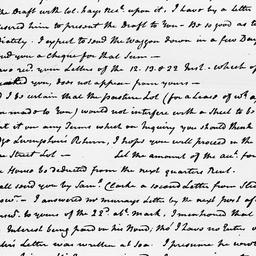 the Draft with Col. Hays Rec.t upon it. I have by a Letter
desired him to present the Draft to you. Be so good as to
diately. I expect to send the Waggon Down in a few Day
nd you a Cheque for that Sum —
ave rec.d your Letters of the 12. 19 & 22 Inst. which of
you, does not appear from yours —
d I be certain that the pasture Lot (for a Lease of w.ch a
on made to you) would not interfere with a Sheet to be
at it on any Terms which on Inquiry you should think
Livingston's Return, I hope you will proceed in the
e Street Lot — Let the amount of the acc.t for
e House be deducted from the next quarters Rent.
all send you by Sam.l Clarke a second Letter from
I answered mr murrays Letter by the next post
to yours of the 22.d ab.t mark, I mentioned that
Interest being paid on his Bond, tho' I have no Entry
Letter was written at Sea. I presume he wrote